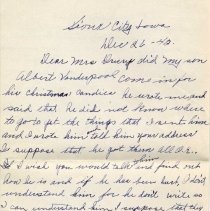 Sioux City Iowa
Dec 26 - 42.
Dear Mrs Drury did my son
Albert Vanderpool come in for
his Christmas Candies he wrote me and
said that he did not know where
to go to get the things that I sent him
and I wrote him & told him your address
I suppose that he got them all O.K.
I wish you would talk and find out
how he is and if he has been hurt, I don't
understand him for he don't write so
I can understand him I suppose that they